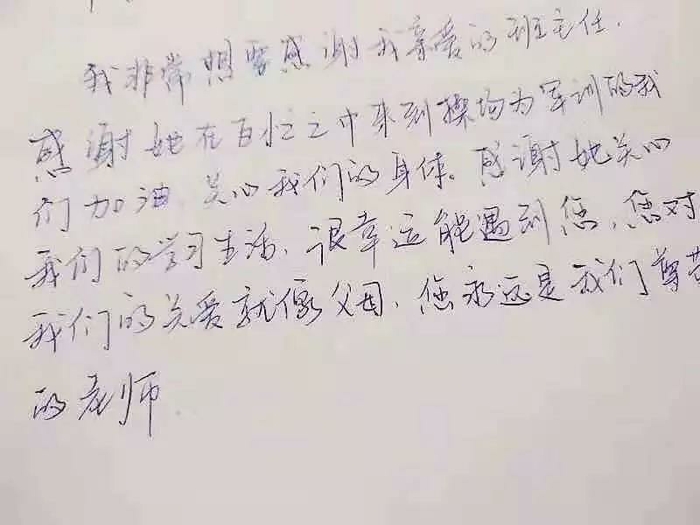 我非常想要感谢我亲爱的班主任.
感谢她在百忙之中来到操场为军训的我
们加油,关心我们的身体。感谢她关心
我们的学习生活,很幸运能遇到您,您对
我们的关爱就像父母,您永远是我们尊敬
的老师